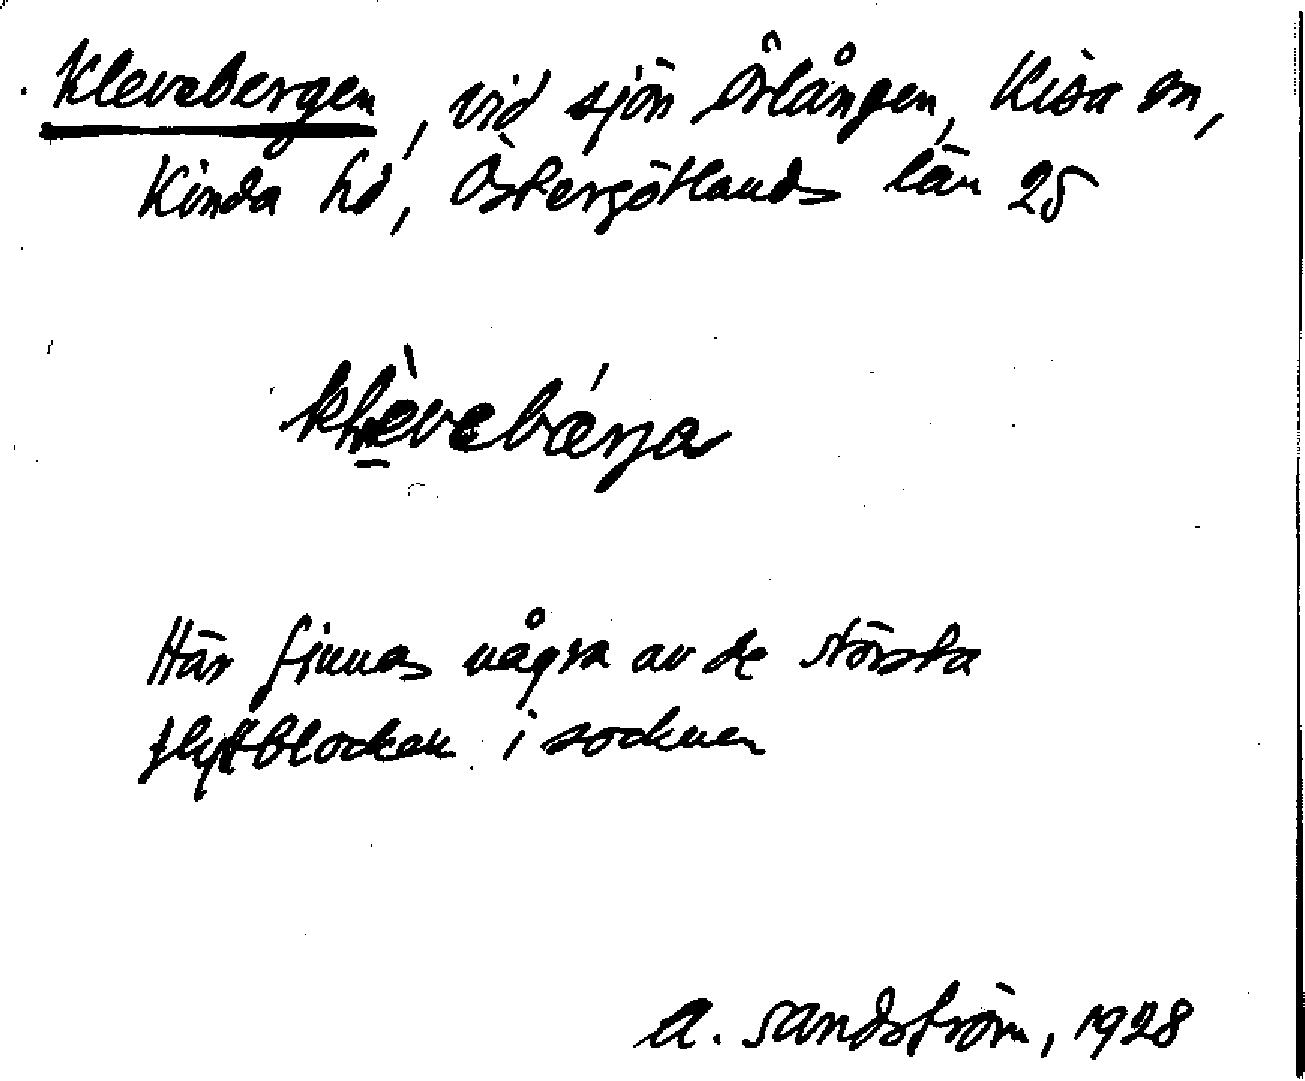 Klevebergen, vid sjön Örlången, Kisa sn,
Kinda hd, Östergötlands län 25
klèvebǽrja
Här finnas några av de största
flyttblocken i socknen
A. Sandström, 1928